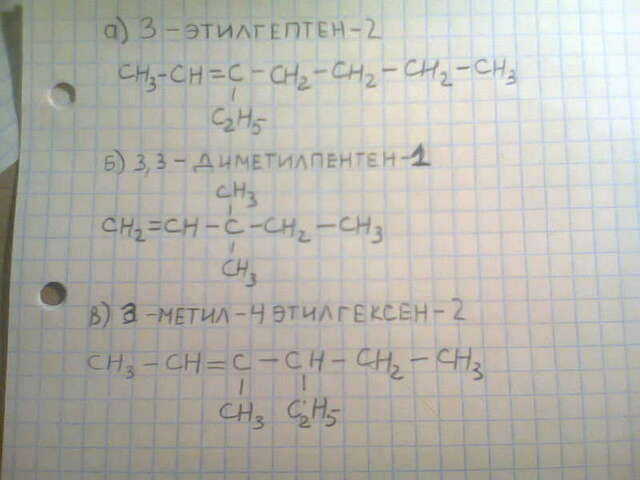 а) 3 - ЭТИЛГЕПТЕН - 2
CH₃-CH=C-CH₂-CH₂-CH₂-CH₃
C₂H₅
Б) 3,3 - ДИМЕТИЛПЕНТЕН-1
CH₃
CH₂=CH-C-CH₂-CH₃
CH₃
В) 3 -МЕТИЛ-4 ЭТИЛГЕКСЕН-2
CH₃-CH=C-CH-CH₂-CH₃
CH₃ C₂H₅